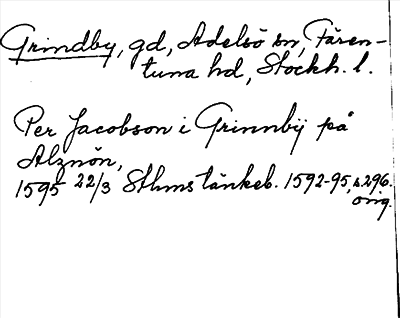 Grindby, gd, Adelsö sn, Fären-
tuna hd, Stockh. l.
Per Jacobson i Grinnbÿ på
Alznön,
1595 22/3 Sthms tänkeb. 1592-95, s. 296.
orig.